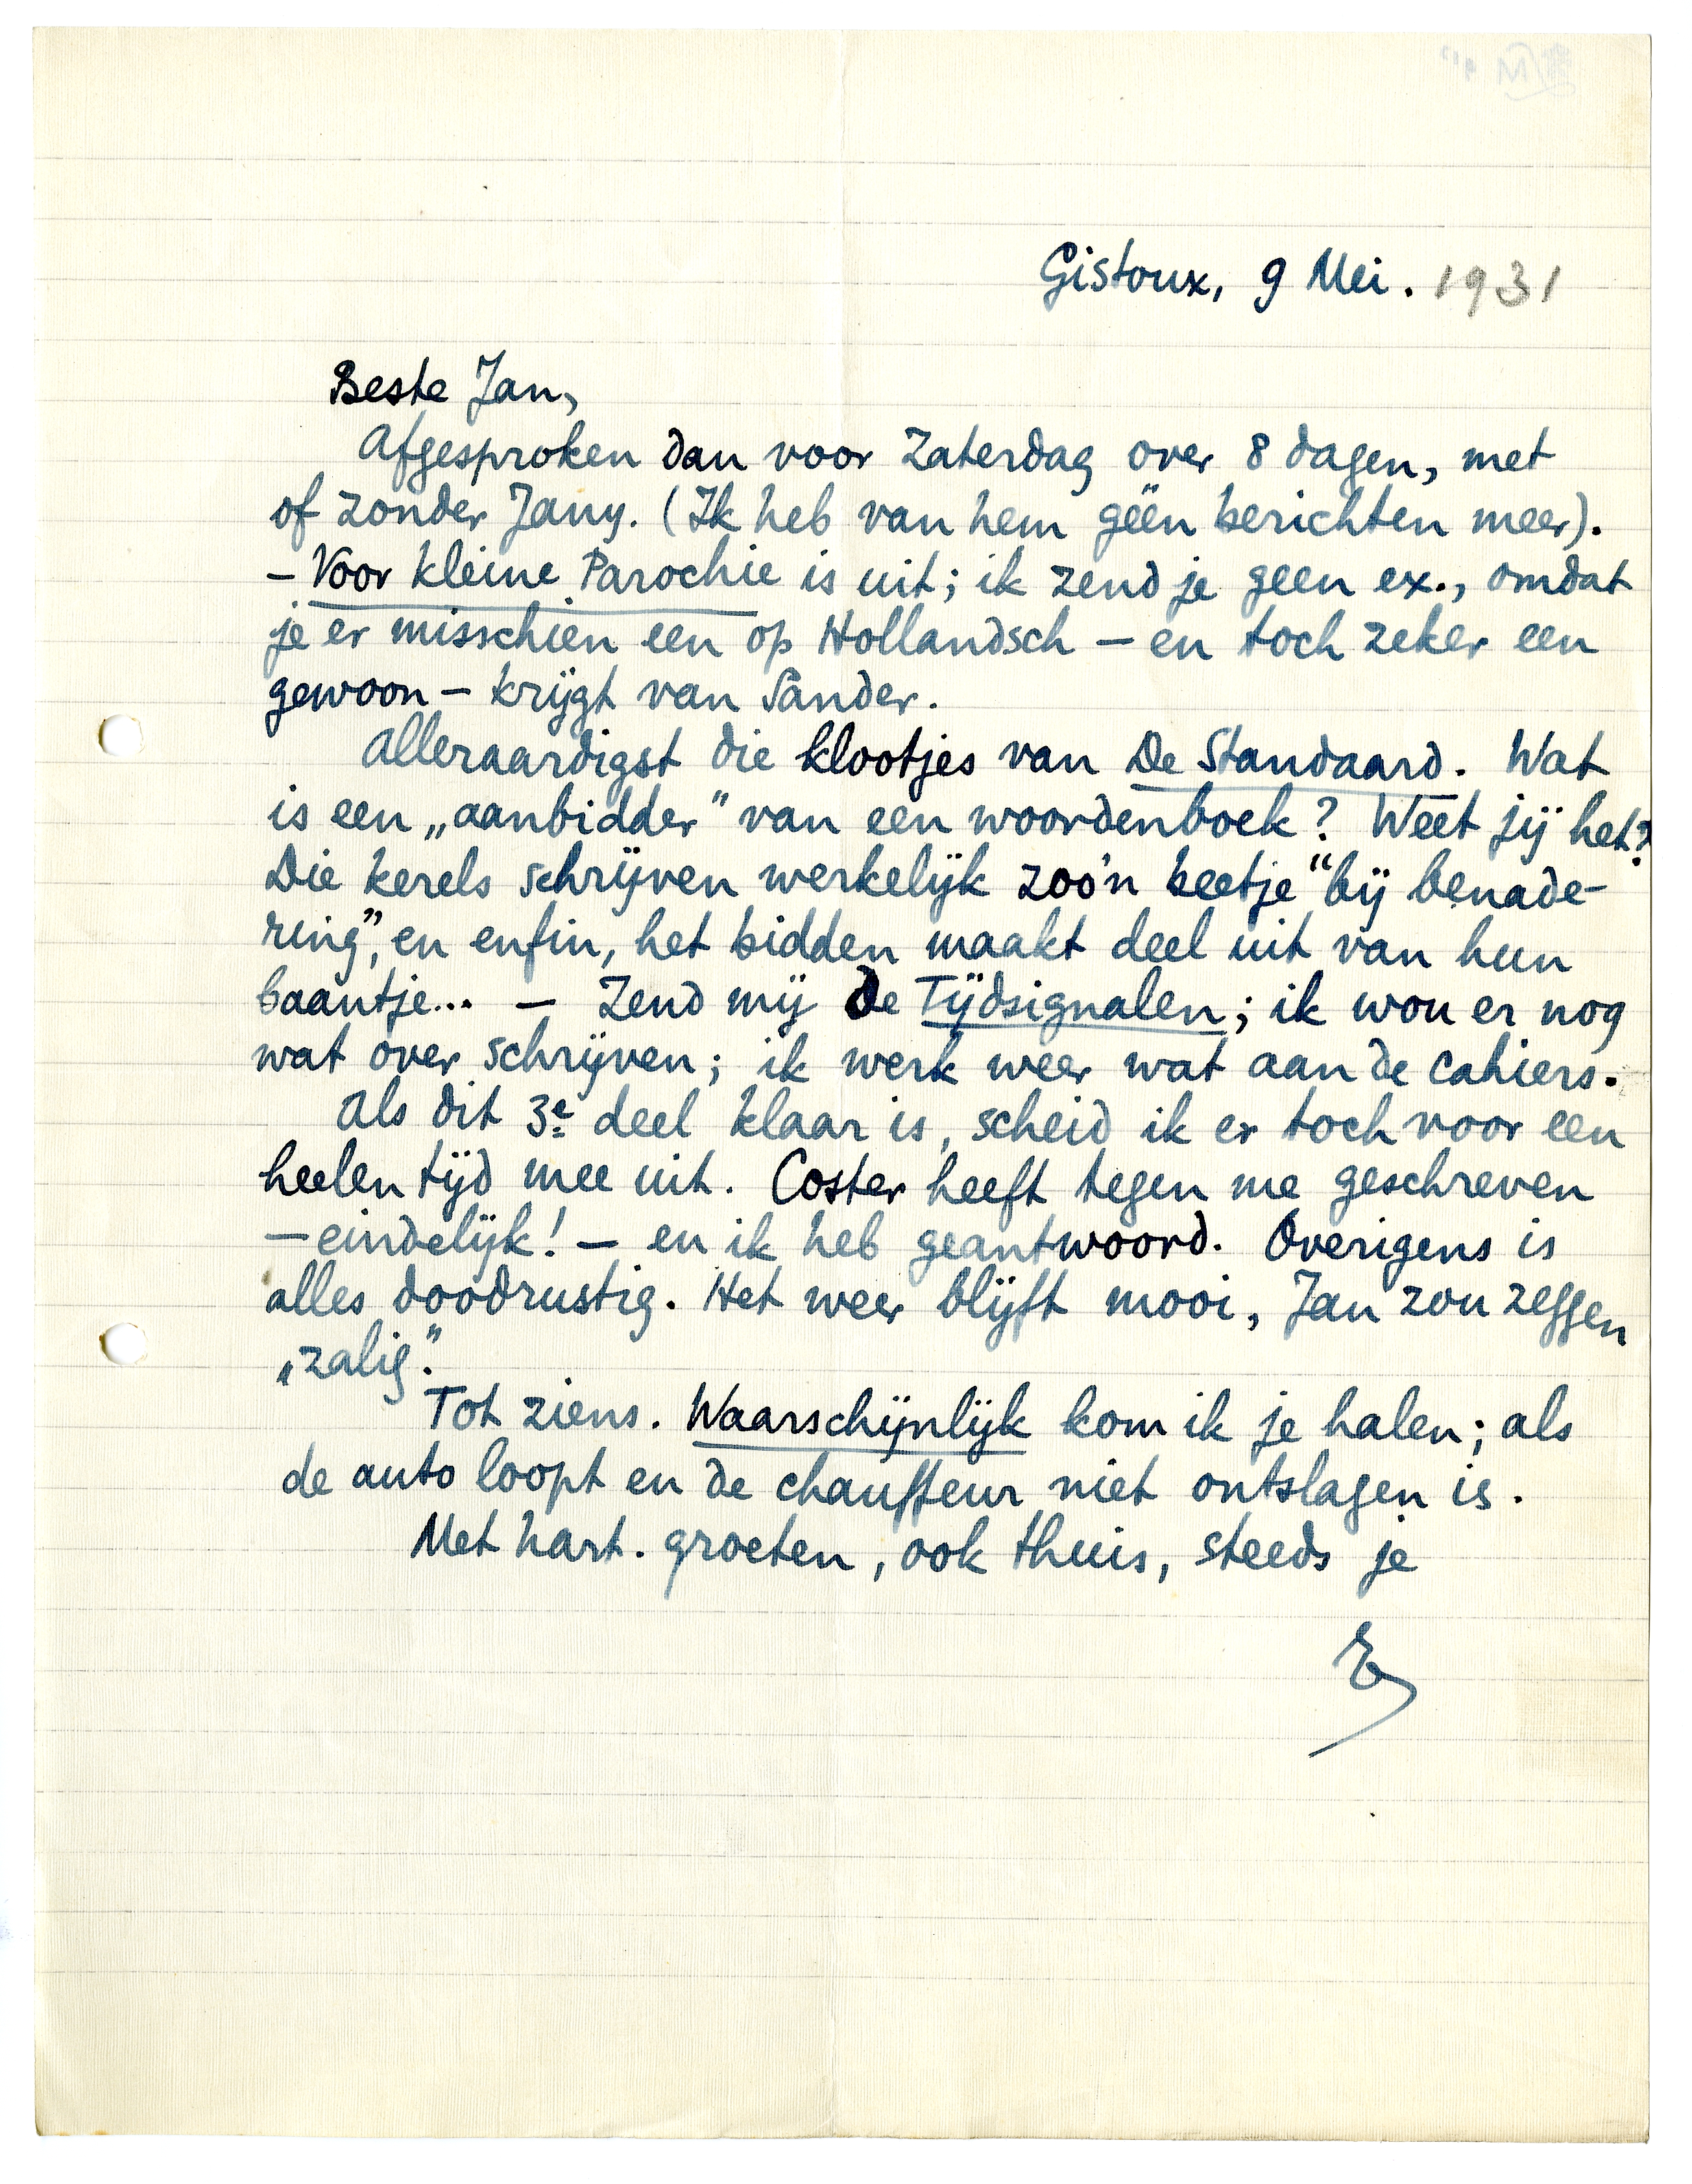 Gistoux, 9 Mei. 1931
Beste Jan,
Afgesproken dan voor Zaterdag over 8 dagen, met
of zonder Jany. (Ik heb van hem géén berichten meer).
– Voor kleine Parochie is uit; ik zend je geen ex., omdat
je er misschien een op Hollandsch – en toch zeker een
gewoon – krijgt van Sander.
Alleraardigst die klootjes van De Standaard. Wat
is een „aanbidder” van een woordenboek? Weet jij het?
Die kerels schrijven werkelijk zoo'n beetje “bij benade-
ring”, en enfin, het bidden maakt deel uit van hun
baantje... – Zend mij de Tijdsignalen; ik wou er nog
wat over schrijven; ik werk weer wat aan de cahiers.
Als dit 3e deel klaar is, scheid ik er toch voor een
heelen tijd mee uit. Coster heeft tegen me geschreven
– eindelijk! – en ik heb geantwoord. Overigens is
alles doodrustig. Het weer blijft mooi, Jan zou zeggen
„zalig”.
Tot ziens. Waarschijnlijk kom ik je halen; als
de auto loopt en de chauffeur niet ontslagen is.
Met hart. groeten, ook thuis, steeds je
E